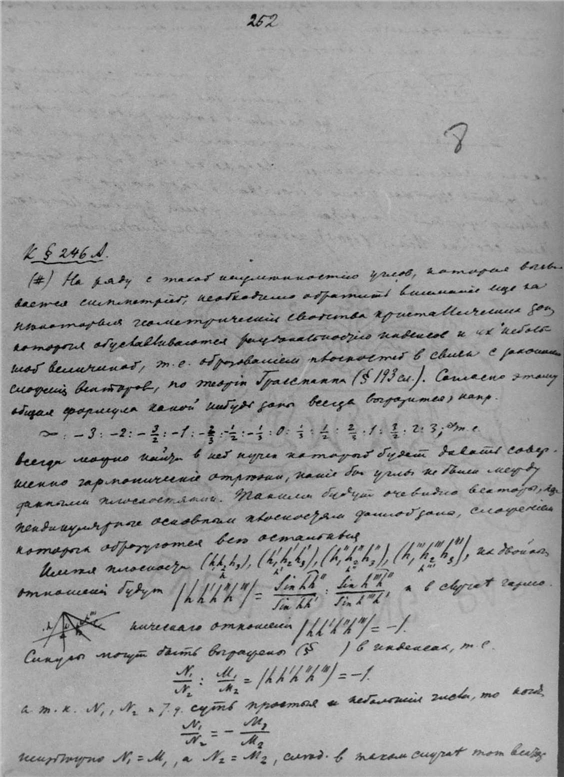 252
8
К § 246 А.
(#) На ряду с такой неизменностию углов, которая вызы-
вается симметрией, необходимо обратить внимание еще на
некоторыя геометрическия свойства кристаллических зон,
которыя обуславливаются рациональностию индексов и их небольшой
величиной, т.е. образованием плоскостей в связи с законами
сложения векторов, по теории Грассманна (§ 193 сл.). Согласно этому
общая формула какой нибудь зоны всегда выразится, напр.
∞ : -3 : -2 : -3/2 : -1 : -2/3 : -1/2 : -1/3 : 0 : 1/3 : 1/2 : 2/3 : 1 : 3/2 : 2 : 3; т.е.
всегда можно найти в ней пучки которые будут давать совер-
шенно гармоническия отношения, какие бы углы не были между
данными плоскостями. Такими будут очевидно векторы, пер-
пендикулярные основным плоскостям данной зоны, сложением
которых образуются все остальныя
Имея плоскости (h₁h₂h₃), (h'₁h'₂h'₃), (h''₁h''₂h''₃), (h'''₁h'''₂h'''₃), их двойное
отношение будут |hh'h''h'''| = sin hh'' / sin hh' : sin h'''h'' / sin h'''h', и в случае гармо-
ническаго отношения |hh'h''h'''| = -1.
Синусы могут быть выражены (§ ) в индексах, т.е.
N₁/N₂ : M₁/M₂ = |hh'h''h'''| = -1.
а т.к. N₁, N₂ и т.д. суть простыя и небольшия числа, то когда
N₁/N₂ = - M₁/M₂
неизбежно N₁ = M₁, а N₂ = M₂, след. в таком случае тот